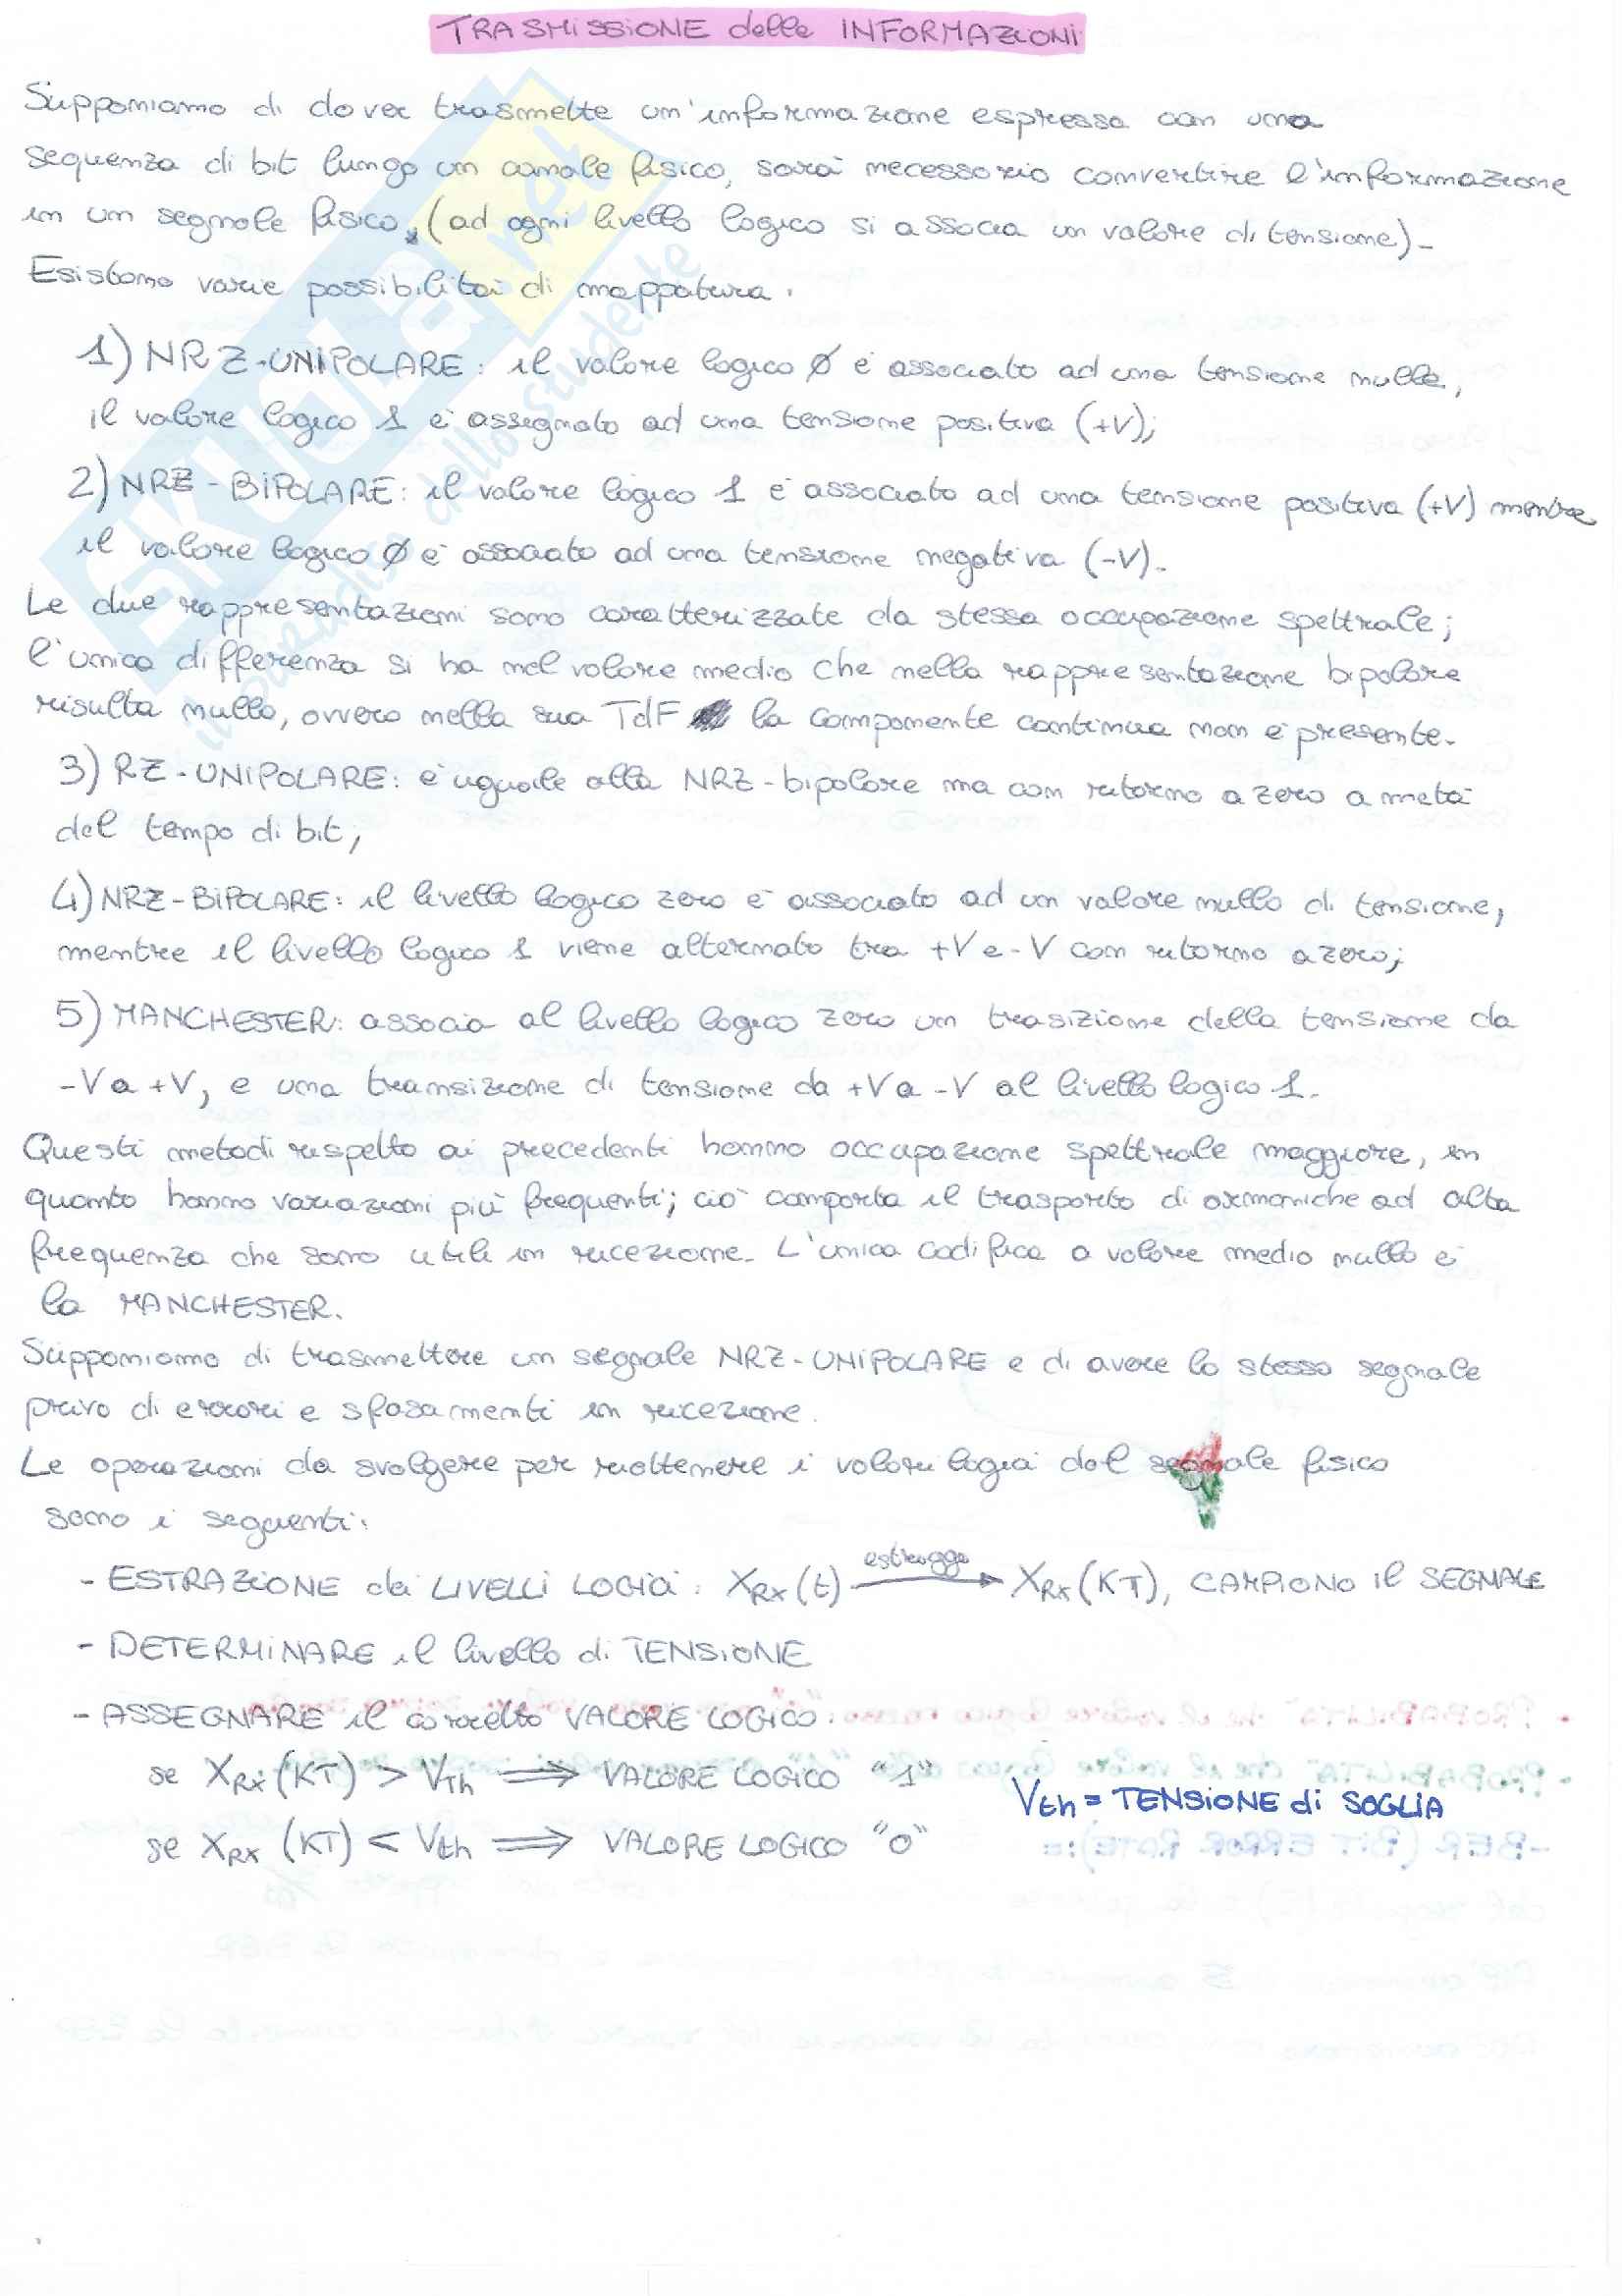 TRASMISSIONE delle INFORMAZIONI
Supponiamo di dover trasmette un'informazione espressa con una
sequenza di bit lungo un canale fisico, sarà necessario convertire l'informazione
in un segnale fisico, (ad ogni livello logico si associa un valore di tensione)-
Esistono varie possibilità di mappatura.
1) NRZ-UNIPOLARE: il valore logico Ø è associato ad una tensione nulla,
il valore logico 1 è assegnato ad una tensione positiva (+V);
2) NRZ-BIPOLARE: il valore logico 1 è associato ad una tensione positiva (+V) mentre
il valore logico Ø è associato ad una tensione negativa (-V).
Le due rappresentazioni sono caratterizzate da stessa occupazione spettrale;
l'unica differenza si ha nel valore medio che nella rappresentazione bipolare
risulta nullo, ovvero nella sua TdF la componente continua non è presente.
3) RZ-UNIPOLARE: è uguale alla NRZ-bipolare ma con ritorno a zero a metà
del tempo di bit,
4) NRZ-BIPOLARE: il livello logico zero è associato ad un valore nullo di tensione,
mentre il livello logico 1 viene alternato tra +V e -V con ritorno a zero;
5) MANCHESTER: associa al livello logico zero un trasizione della tensione da
-V a +V, e una transizione di tensione da +V a -V al livello logico 1.
Questi metodi rispetto ai precedenti hanno occupazione spettrale maggiore, in
quanto hanno variazioni più frequenti; ciò comporta il trasporto di armoniche ad alta
frequenza che sono utili in ricezione. L'unica codifica a valore medio nullo è
la MANCHESTER.
Supponiamo di trasmettere un segnale NRZ-UNIPOLARE e di avere lo stesso segnale
privo di errori e sfasamenti in ricezione.
Le operazioni da svolgere per riottenere i valori logici dal segnale fisico
sono i seguenti:
- ESTRAZIONE dei LIVELLI LOGICI: XRx(t) estraggo → XRx(KT), CAMPIONO il SEGNALE
- DETERMINARE il livello di TENSIONE
- ASSEGNARE il corretto VALORE LOGICO.
se XRx(KT) > VTh ⟹ VALORE LOGICO "1"
Vth = TENSIONE di SOGLIA
se XRx(KT) < Vth ⟹ VALORE LOGICO "0"
SKUOLA.net
il paradiso dello studente